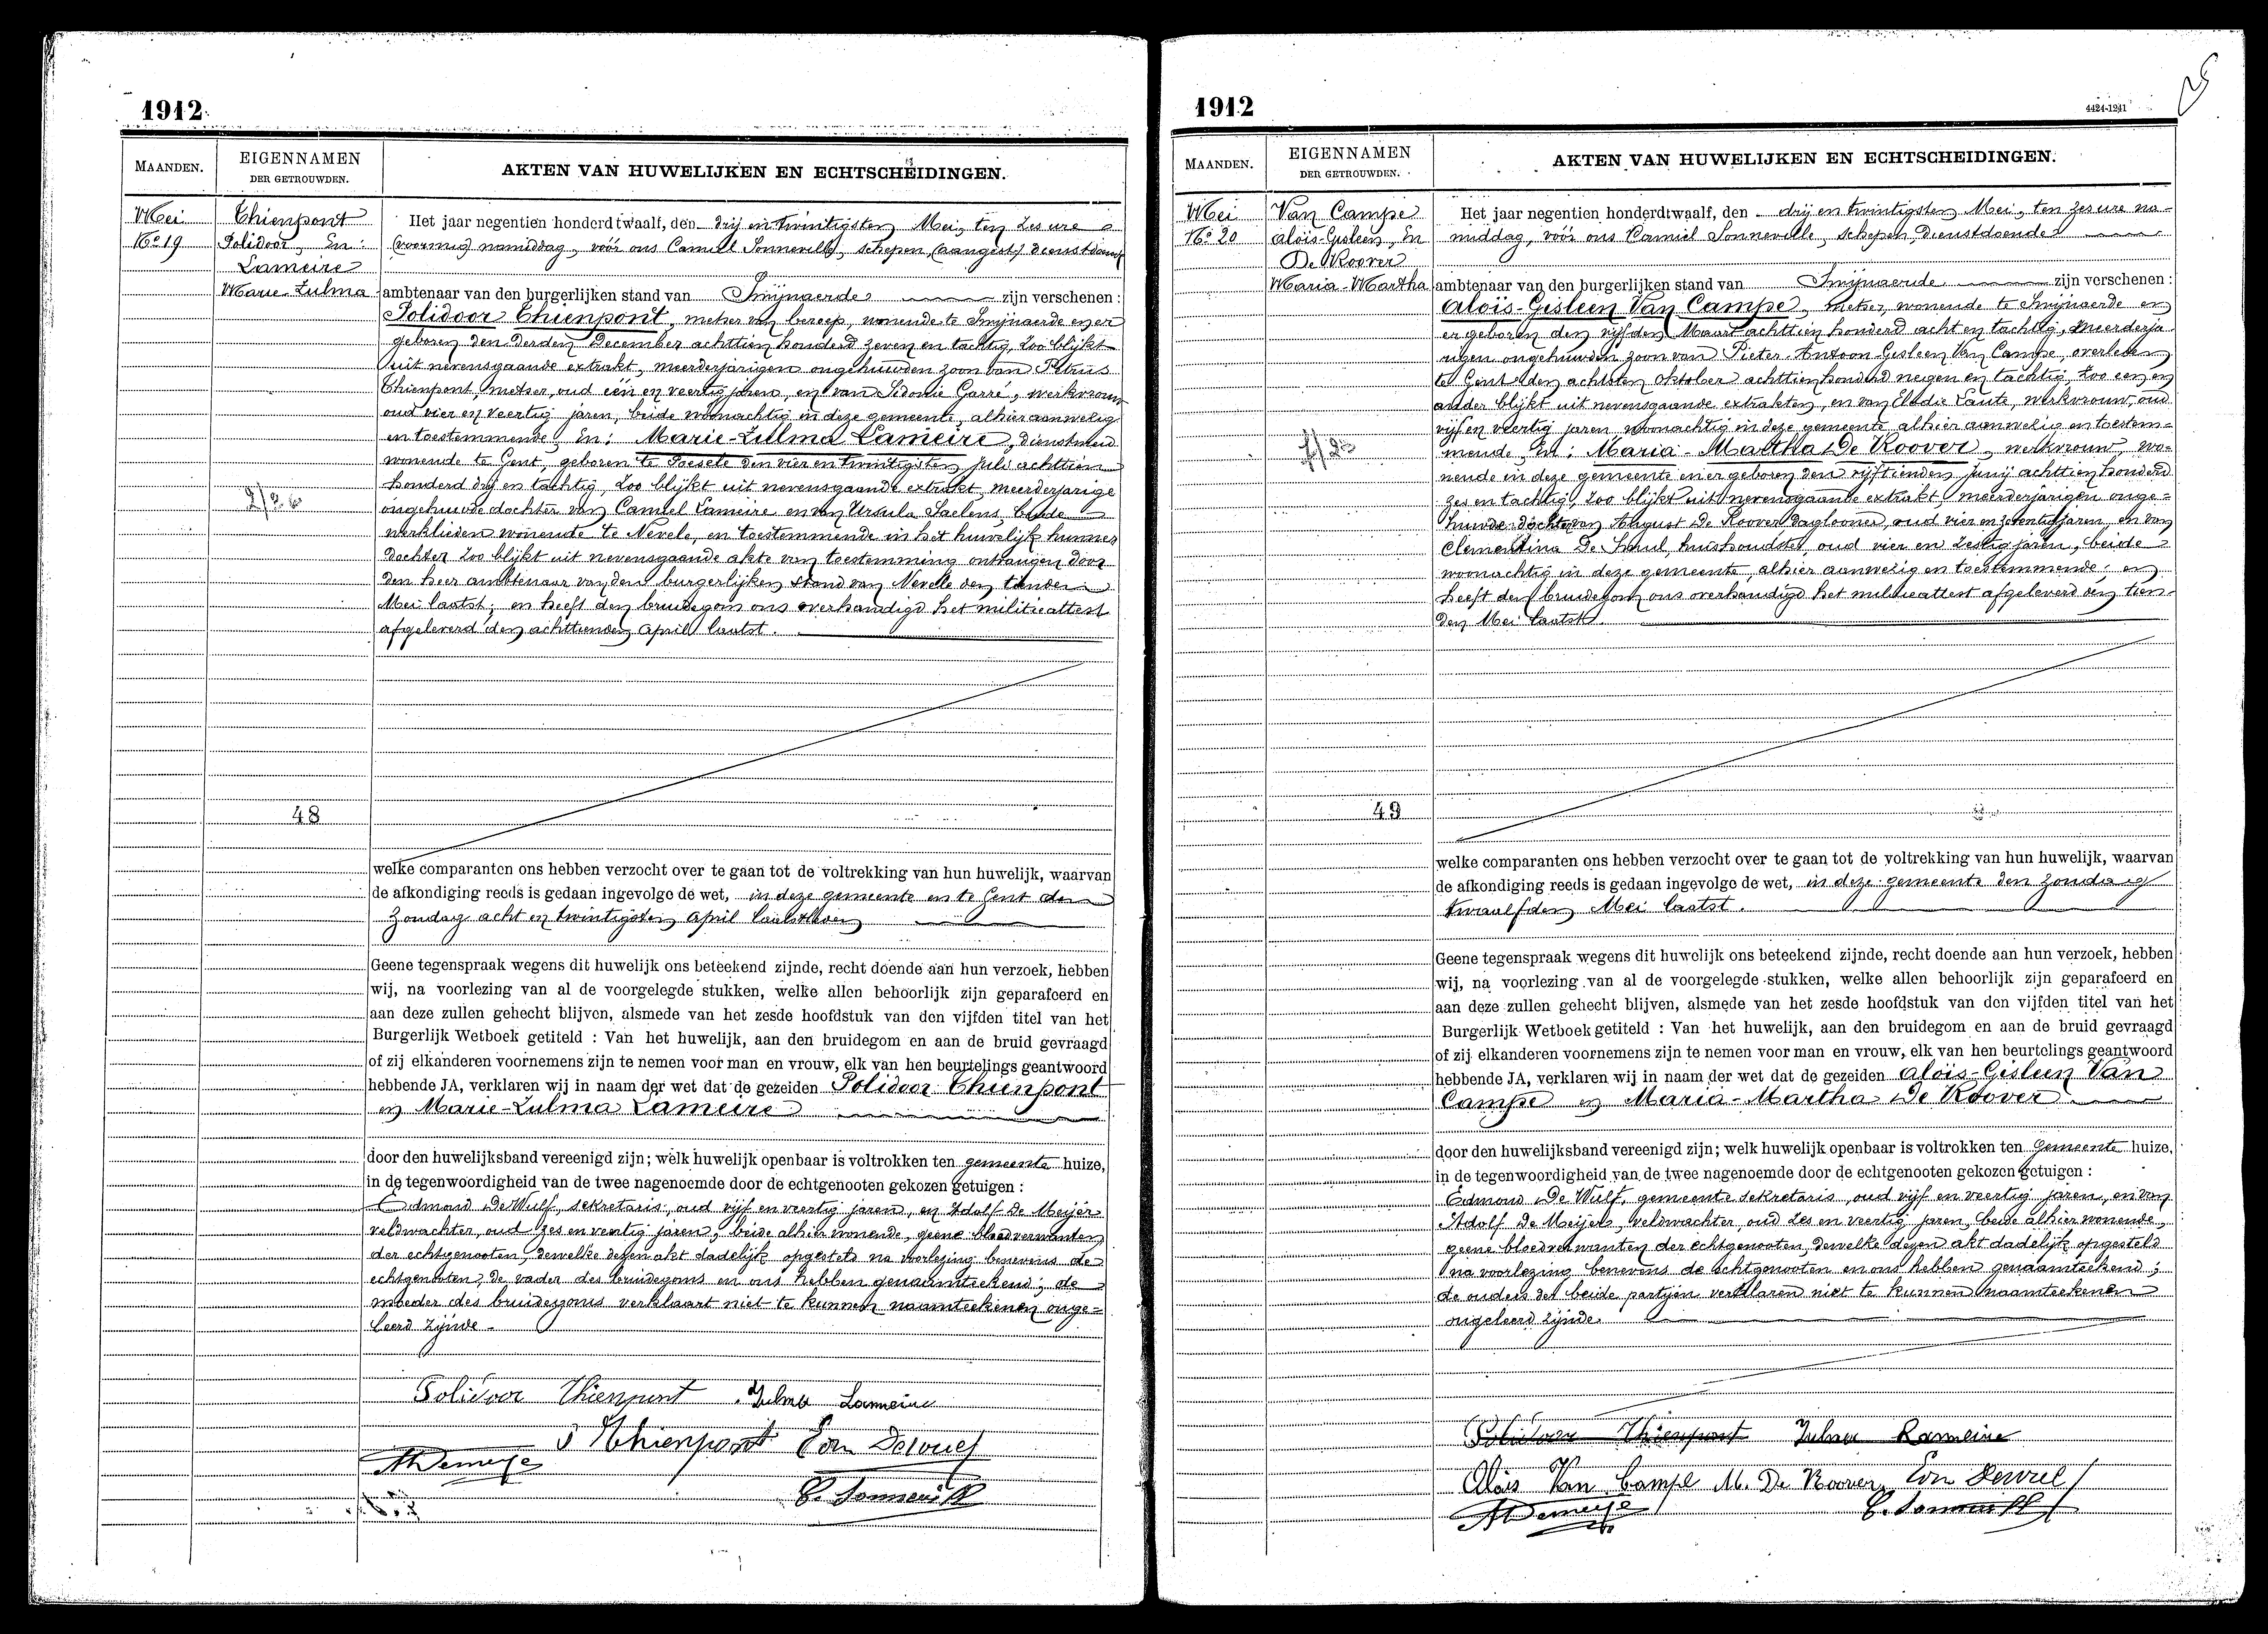 1912
MAANDEN.
EIGENNAMEN
DER GETROUWDEN.
AKTEN VAN HUWELIJKEN EN ECHTSCHEIDINGEN.
Mei
No 19
Thienpont
Polidoor, En:
Lameire
Marie-Zulma
Het jaar negentien honderd twaalf, den drij en twintigsten Mei, ten zes ure
(voormid) namiddag, vóór ons Camiel Sonneville, schepen, (aangest) dienstdoend
ambtenaar van den burgerlijken stand van Swijnaerde zijn verschenen :
Polidoor Thienpont, metser van beroep, wonende te Swijnaerde en er
geboren den derden December achttien honderd zeven en tachtig, zoo blijkt
uit nevensgaande extrakt, meerderjarigen ongehuwden zoon van Petrus
Thienpont, metser, oud één en veertig jaren, en van Sidonie Garré, werkvrouw
oud vier en veertig jaren, beide woonachtig in deze gemeente, alhier aanwezig
en toestemmende, En: Marie-Zulma Lameire, dienstmeid
wonende te Gent, geboren te Poesele den vier en twintigsten Juli achttien
honderd drij en tachtig, zoo blijkt uit nevensgaande extrakt, meerderjarige
ongehuwde dochter van Camiel Lameire en van Ursula Saelens, beide
werklieden wonende te Nevele, en toestemmende in het huwelijk hunner
dochter zoo blijkt uit nevensgaande akte van toestemming ontvangen door
den heer ambtenaar van den burgerlijken stand van Nevele den tienden
Mei laatst; en heeft den bruidegom ons overhandigd het militieattest
afgeleverd den achttienden April laatst.
48
welke comparanten ons hebben verzocht over te gaan tot de voltrekking van hun huwelijk, waarvan
de afkondiging reeds is gedaan ingevolge de wet, in deze gemeente en te Gent den
Zondag acht en twintigsten April laatstleden
Geene tegenspraak wegens dit huwelijk ons beteekend zijnde, recht doende aan hun verzoek, hebben
wij, na voorlezing van al de voorgelegde stukken, welke allen behoorlijk zijn geparafeerd en
aan deze zullen gehecht blijven, alsmede van het zesde hoofdstuk van den vijfden titel van het
Burgerlijk Wetboek getiteld : Van het huwelijk, aan den bruidegom en aan de bruid gevraagd
of zij elkanderen voornemens zijn te nemen voor man en vrouw, elk van hen beurtelings geantwoord
hebbende JA, verklaren wij in naam der wet dat de gezeiden Polidoor Thienpont
en Marie-Zulma Lameire
door den huwelijksband vereenigd zijn; welk huwelijk openbaar is voltrokken ten gemeente huize,
in de tegenwoordigheid van de twee nagenoemde door de echtgenooten gekozen getuigen :
Edmond De Wulf, sekretaris, oud vijf en veertig jaren, en Adolf De Meijer
veldwachter, oud zes en veertig jaren, beide alhier wonende, geene bloedverwanten
der echtgenooten, dewelke dezen akt dadelijk opgesteld na voorlezing benevens de
echtgenooten, de vader des bruidegoms en ons hebben genaamteekend; de
moeder des bruidegoms verklaart niet te kunnen naamteekenen onge=
leerd zijnde.
Polidoor Thienpont Zulma Lameire
P Thienpont Edm Dewulf
A Demeyer
C. Sonneville
1912
4424-1241
MAANDEN.
EIGENNAMEN
DER GETROUWDEN.
AKTEN VAN HUWELIJKEN EN ECHTSCHEIDINGEN.
Mei
No 20
Van Campe
Aloïs-Gisleen, En
De Koover
Maria-Martha
Het jaar negentien honderdtwaalf, den drij en twintigsten Mei, ten zes ure na-
middag, vóór ons Camiel Sonneville, schepen, dienstdoende
ambtenaar van den burgerlijken stand van Swijnaerde zijn verschenen :
Aloïs-Gisleen Van Campe, metser, wonende te Swijnaerde en
er geboren den vijfden Maart achttien honderd acht en tachtig, meerderja
rigen ongehuwden zoon van Pieter-Antoon-Gisleen Van Campe, overleden
te Gent den achtsten Oktober achttien honderd negen en tachtig, zoo een en
ander blijkt uit nevensgaande extrakten, en van Elodie Laute, werkvrouw, oud
vijf en veertig jaren woonachtig in deze gemeente alhier aanwezig en toestem=
mende, En: Maria-Martha De Koover, werkvrouw, wo=
nende in deze gemeente en er geboren den vijftienden Junij achttien honderd
zes en tachtig, zoo blijkt uit nevensgaande extrakt, meerderjarigen onge=
huwde dochter van August De Koover daglooner, oud vier en zeventig jaren, en van
Clementina De huishoudster oud vier en zestig jaren, beide
woonachtig in deze gemeente, alhier aanwezig en toestemmende; en
heeft den bruidegom ons overhandigd het militieattest afgeleverd den tien-
den Mei laatst.
49
welke comparanten ons hebben verzocht over te gaan tot de voltrekking van hun huwelijk, waarvan
de afkondiging reeds is gedaan ingevolge de wet, in deze gemeente den Zondag
twaalfden Mei laatst.
Geene tegenspraak wegens dit huwelijk ons beteekend zijnde, recht doende aan hun verzoek, hebben
wij, na voorlezing van al de voorgelegde stukken, welke allen behoorlijk zijn geparafeerd en
aan deze zullen gehecht blijven, alsmede van het zesde hoofdstuk van den vijfden titel van het
Burgerlijk Wetboek getiteld : Van het huwelijk, aan den bruidegom en aan de bruid gevraagd
of zij elkanderen voornemens zijn te nemen voor man en vrouw, elk van hen beurtelings geantwoord
hebbende JA, verklaren wij in naam der wet dat de gezeiden Aloïs-Gisleen Van
Campe en Maria-Martha De Koover
door den huwelijksband vereenigd zijn; welk huwelijk openbaar is voltrokken ten Gemeente huize,
in de tegenwoordigheid van de twee nagenoemde door de echtgenooten gekozen getuigen :
Edmond De Wulf, gemeente sekretaris, oud vijf en veertig jaren, en van
Adolf De Meijer, veldwachter oud zes en veertig jaren, beide alhier wonende,
geene bloedverwanten der echtgenooten, dewelke dezen akt dadelijk opgesteld
na voorlezing benevens de echtgenooten en ons hebben genaamteekend;
de ouders der beide partijen verklaren niet te kunnen naamteekenen
ongeleerd zijnde.
Polidoor Thienpont Zulma Lameire
Aloïs Van Campe M. De Koover Edm Dewulf
A Demeyer
C. Sonneville